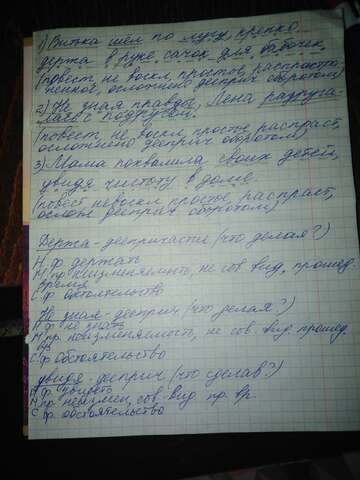 1) Витька шёл по лугу, крепко
держа в руке, сачок для бабочек,
(повест, не воскл, простое, распростра-
ненное, осложнено дееприч оборотом)
2) Не зная правды, Лена разруга-
лась с подругой.
(повест, не воскл, просты, распраст,
осложнено дееприч оборотом)
3) Мама похвалила своих детей,
увидя чистоту в доме.
(повест, невоскл, просты, распраст,
ослож дееприч оборотом)
Держа - деепричастие (что делая?)
Н. ф. держать
М. пр. неизменяемость, не сов. вид, прошед.
время
С. ф. обстоятельство
Не зная - дееприч (что делая?)
Н. ф. не знать
М. пр. неизменяемость, не сов. вид прошед.
вр
С. ф. обстоятельство
увидя - дееприч (что сделав?)
Н. ф. увидеть
М. пр. неизмен, сов. вид пр. вр.
С. ф. обстоятельство